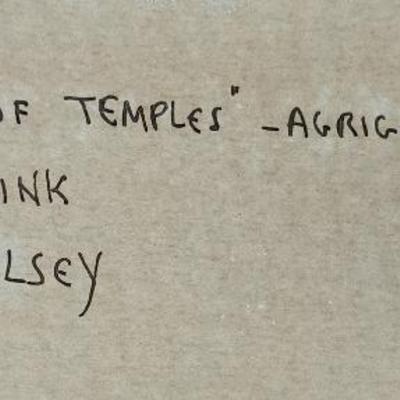 OF TEMPLES" - AGRIG
INK
LSEY